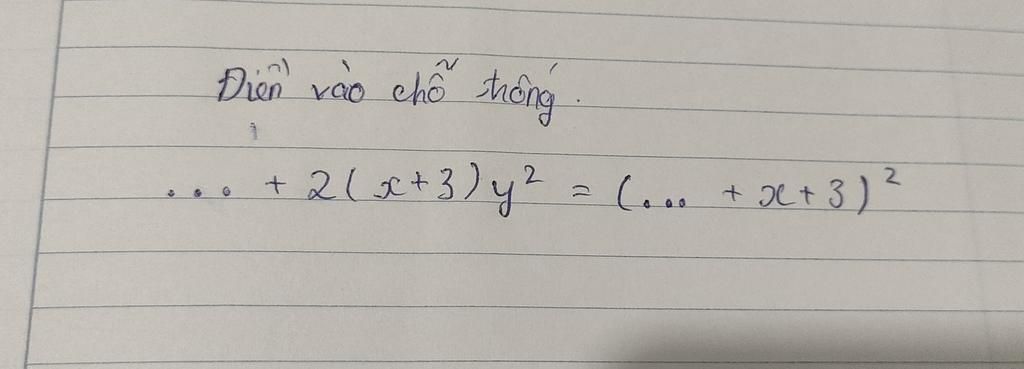 Điền vào chỗ thống.
... + 2(x+3)y² = (... + x+3)²